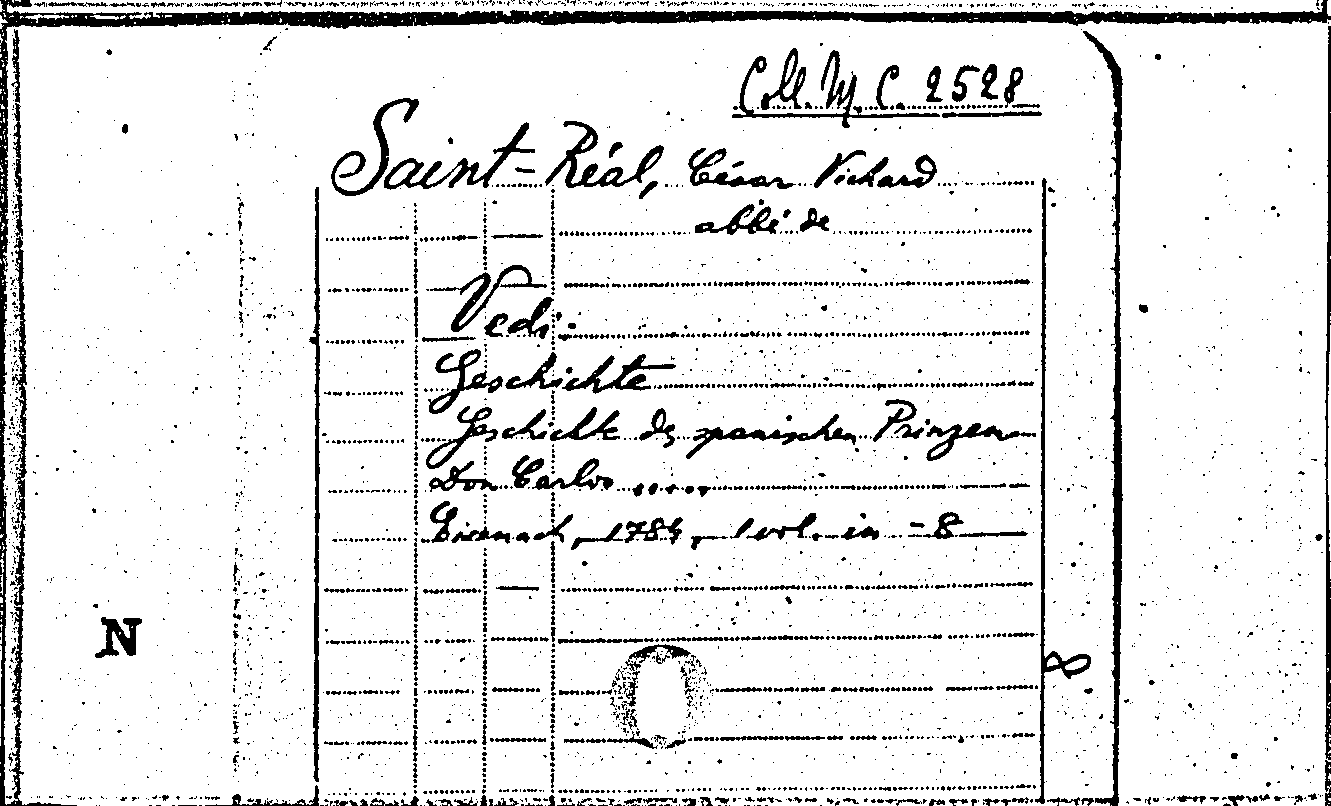 Coll. M. C. 2528
Saint-Réal, César Vichard
abbé de
Vedi:
Geschichte
Geschichte des spanischen Prinzen
Don Carlos .....
Eisenach, 1784, 1 vol. in -8
N